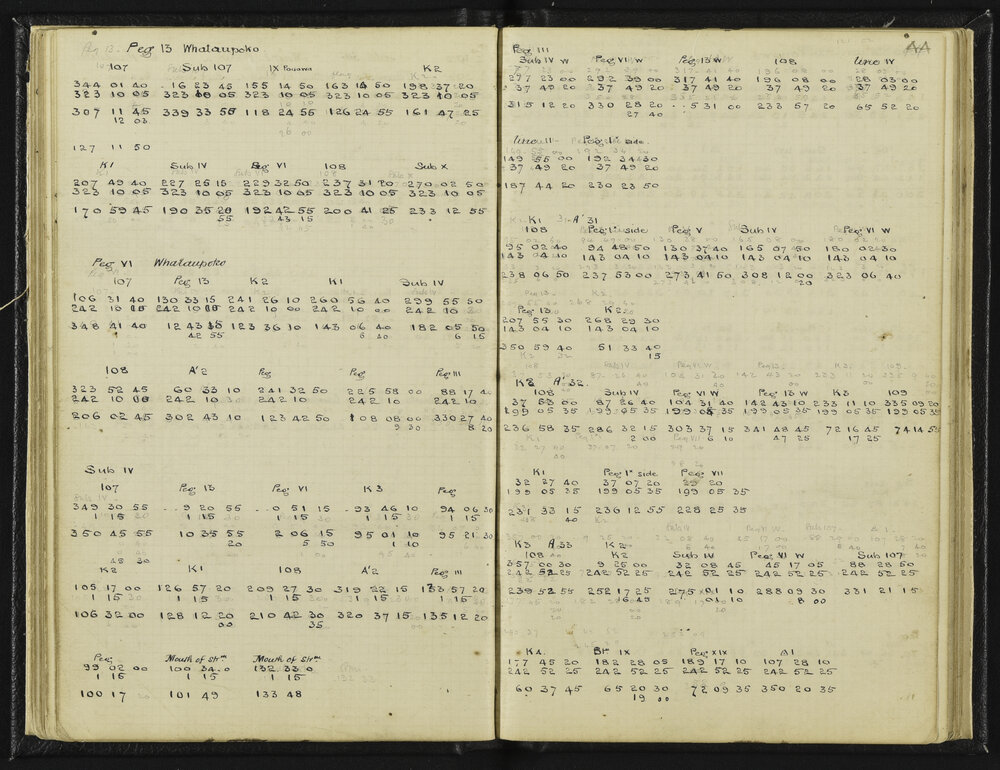 Peg 13 Whataupoko.
107 Sub 107 IX Pouawa K2
344 01 40 16 23 45 155 14 50 163 14 50 198 37 20
323 10 05 323 10 05 323 10 05 323 10 05 323 10 05
307 11 45 339 33 55 118 24 55 126 24 55 161 47 25
12 03
127 11 50
K1 Sub IV Peg VI 108 Sub X
207 49 40 227 25 15 229 32 50 237 31 20 270 02 50
323 10 05 323 10 05 323 10 05 323 10 05 323 10 05
170 59 45 190 35 20 192 42 55 200 41 25 233 12 55
55 43 15
Peg VI Whataupoko
107 Peg 13 K2 K1 Sub IV
106 31 40 130 33 15 241 26 10 260 56 40 299 55 50
242 10 00 242 10 00 242 10 00 242 10 00 242 10
348 41 40 12 43 35 123 36 10 143 06 40 182 05 50
42 55 6 30 6 15
108 A'2 Peg Peg Peg III
323 52 45 60 33 10 241 32 50 225 58 00 88 17 40
242 10 00 242 10 242 10 242 10 242 10
206 02 45 302 43 10 123 42 50 108 08 00 330 27 40
9 30 8 20
Sub IV
107 Peg 13 Peg VI K3 Peg
349 30 55 .. 9 20 55 ..0 51 15 .. 93 46 10 94 06 30
1 15 1 15 1 15 1 15 1 15
350 45 55 10 35 55 2 06 15 95 01 10 95 21 30
20 5 50 1 10
45 30
K2 K1 108 A'2 Peg III
105 17 00 126 57 20 209 27 30 319 22 15 133 57 20
1 15 1 15 1 15 1 15 1 15
106 32 00 128 12 20 210 42 30 320 37 15 135 12 20
00 35
Peg Mouth of Strm Mouth of Strm
99 02 00 100 34 0 132 33 0
1 15 1 15 1 15
100 17 101 49 133 48
AA
Peg III
Sub IV W Peg VI W Peg 13 W 108 Uno IV
277 23 00 292 39 00 317 41 40 196 08 00 28 03 00
37 49 20 37 49 20 37 49 20 37 49 20 37 49 20
315 12 20 330 28 20 .. 5 31 00 233 57 20 65 52 20
27 40
Uno II Peg 1st side
149 55 00 192 34 30
37 49 20 37 49 20
187 44 20 230 23 50
K1 A'31
108 Peg 1st side Peg V Sub IV Peg VI W
95 02 40 94 48 50 130 37 40 165 07 50 180 02 30
143 04 10 143 04 10 143 04 10 143 04 10 143 04 10
238 06 50 237 53 00 273 41 50 308 12 00 323 06 40
20
Peg 13 K2
207 55 30 268 29 30
143 04 10 143 04 10
350 59 40 51 33 40
15
K2 A'32.
108 Sub IV Peg VI W Peg 13 W K3 109
37 53 00 87 26 40 104 31 40 142 43 10 233 11 10 335 09 20
199 05 35 199 05 35 199 05 35 199 05 35 199 05 35 199 05 35
236 58 35 286 32 15 303 37 15 341 48 45 72 16 45 74 14 55
2 00 6 10 47 25 17 25
K1 Peg 1st side Peg VII
32 27 40 37 07 20 29 20
199 05 35 199 05 35 199 05 35
231 33 15 236 12 55 228 25 35
40
K3 A33
108 K2 Sub IV Peg VI W Sub 107
357 00 30 9 25 00 32 08 45 45 17 05 88 28 50
242 52 25 242 52 25 242 52 25 242 52 25 242 52 25
239 52 55 252 17 25 275 01 10 288 09 30 331 21 15
16 49 01 10 8 00
K4 Bn IX Peg XIX A1
177 45 20 182 28 05 189 17 10 107 28 10
242 52 25 242 52 25 242 52 25 242 52 25
60 37 45 65 20 30 72 09 35 350 20 35
19 00